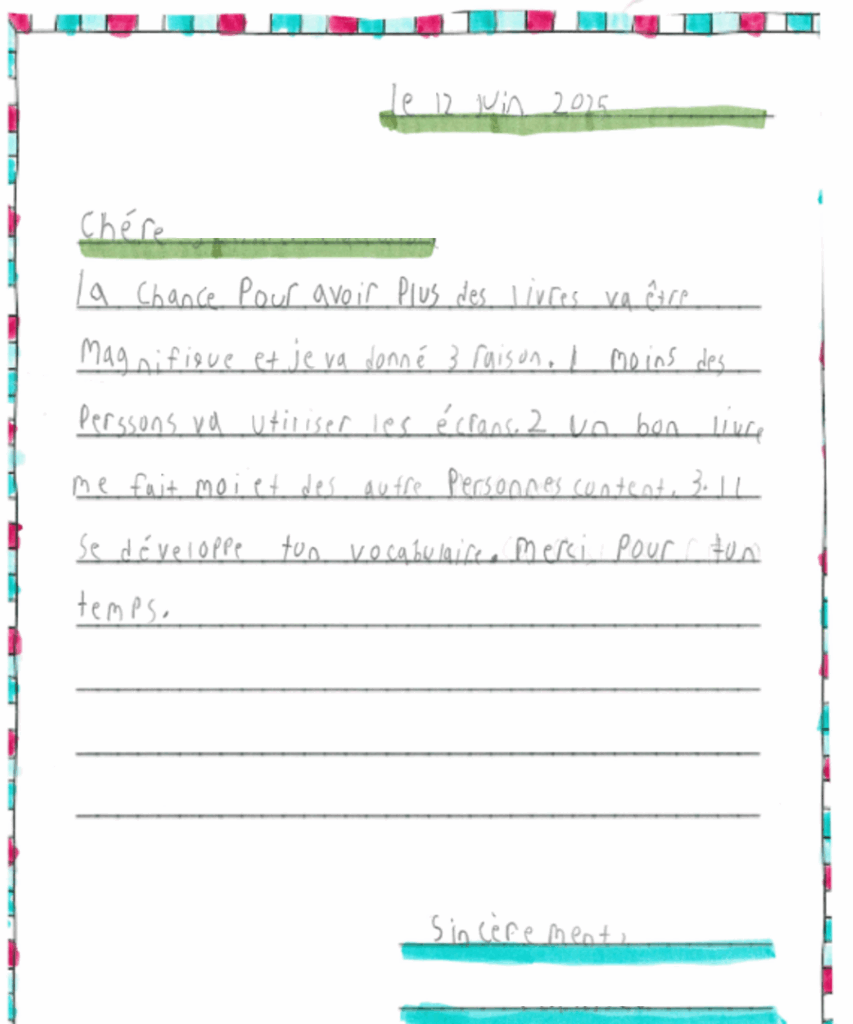 le 12 juin 2025
Chére
la chance Pour avoir Plus des livres va être
Magnifique et je va donné 3 raison. 1 moins des
Perssons va utiriser les écrans. 2 un bon livre
me fait moi et des autre Personnes content. 3. Il
se développe ton vocabulaire. Merci Pour ton
temps.
Sincèrement,